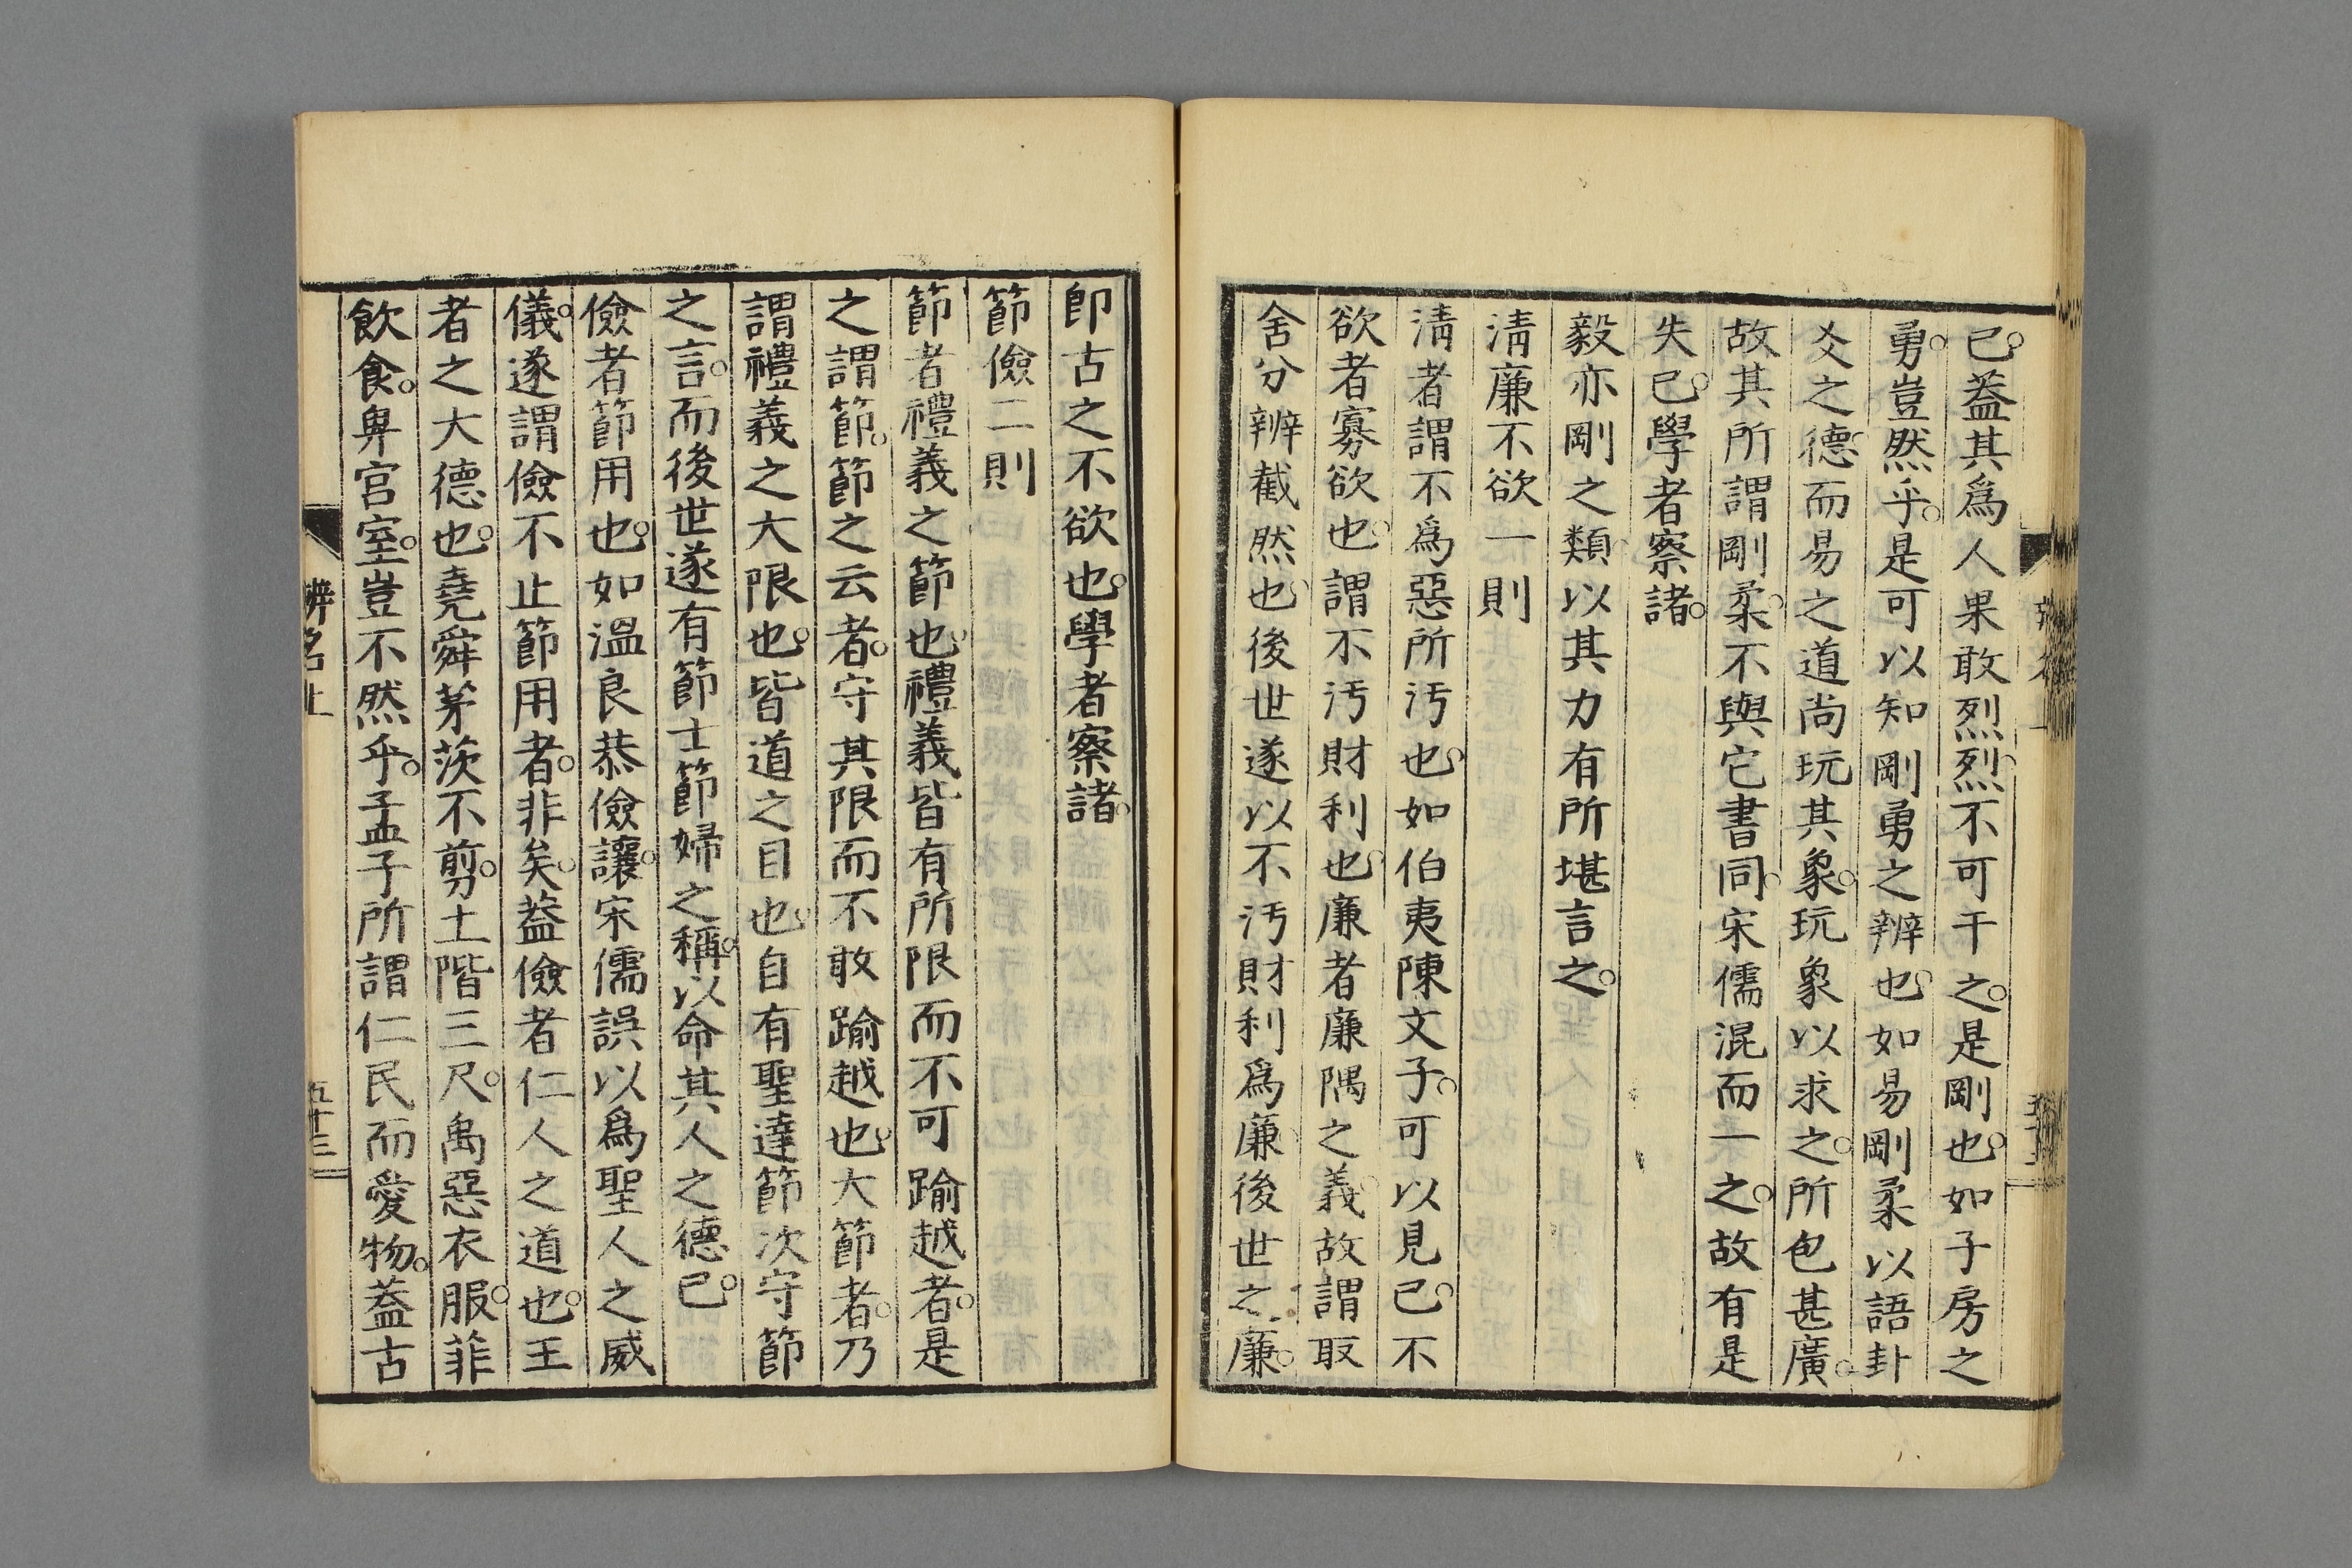 已。葢其爲人果敢烈烈。不可干之。是剛也。如子房之
勇。豈然乎。是可以知剛勇之辨也。如易剛柔以語卦
爻之德。而易之道尚玩其象。玩象以求之。所包甚廣。
故其所謂剛柔。不與它書同。宋儒混而一之。故有是
失已。學者察諸。
毅亦剛之類。以其力有所堪言之。
淸廉不欲一則
淸者謂不爲惡所汚也。如伯夷陳文子。可以見已。不
欲者寡欲也。謂不汚財利也。廉者廉隅之義。故謂取
舍分辨截然也。後世遂以不汚財利爲廉。後世之廉。
卽古之不欲也。學者察諸。
節儉二則
節者禮義之節也。禮義皆有所限而不可踰越者。是
之謂節。節之云者。守其限而不敢踰越也。大節者。乃
謂禮義之大限也。皆道之目也。自有聖達節次守節
之言。而後世遂有節士節婦之稱。以命其人之德已。
儉者節用也。如溫良恭儉讓。宋儒誤以爲聖人之威
儀。遂謂儉不止節用者。非矣。葢儉者仁人之道也。王
者之大德也。堯舜茅茨不剪。土階三尺。禹惡衣服。菲
飮食。卑宮室。豈不然乎。孟子所謂仁民而愛物。葢古
辨名上
五十三